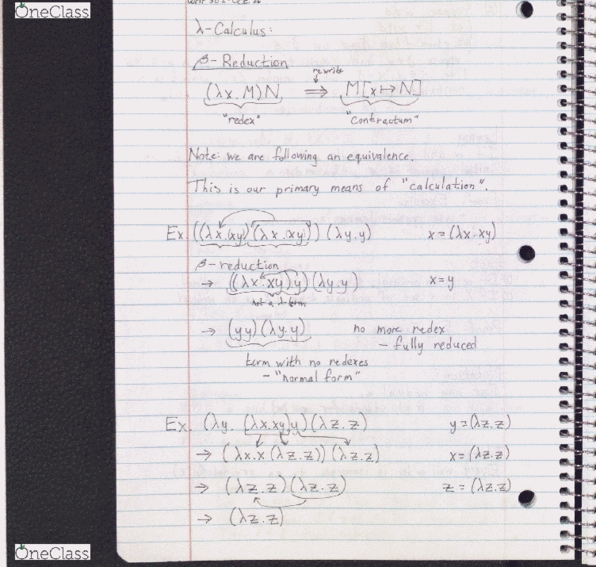 OneClass
λ-Calculus:
β-Reduction
rewrite
(λx. M)N ⇒ M[x↦N]
"redex" "contractum"
Note: we are following an equivalence.
This is our primary means of "calculation".
Ex. ((λx.(xy)(λx.xy))(λy.y) x=(λx.xy)
β-reduction
→ ((λx.xy)y)(λy.y) x=y
not a λ-term
→ (yy)(λy.y) no more redex
- fully reduced
term with no redexes
- "normal form"
Ex. (λy. (λx.xy)y)(λz.z) y=(λz.z)
→ (λx.x(λz.z))(λz.z) x=(λz.z)
→ (λz.z)(λz.z) z=(λz.z)
→ (λz.z)
OneClass